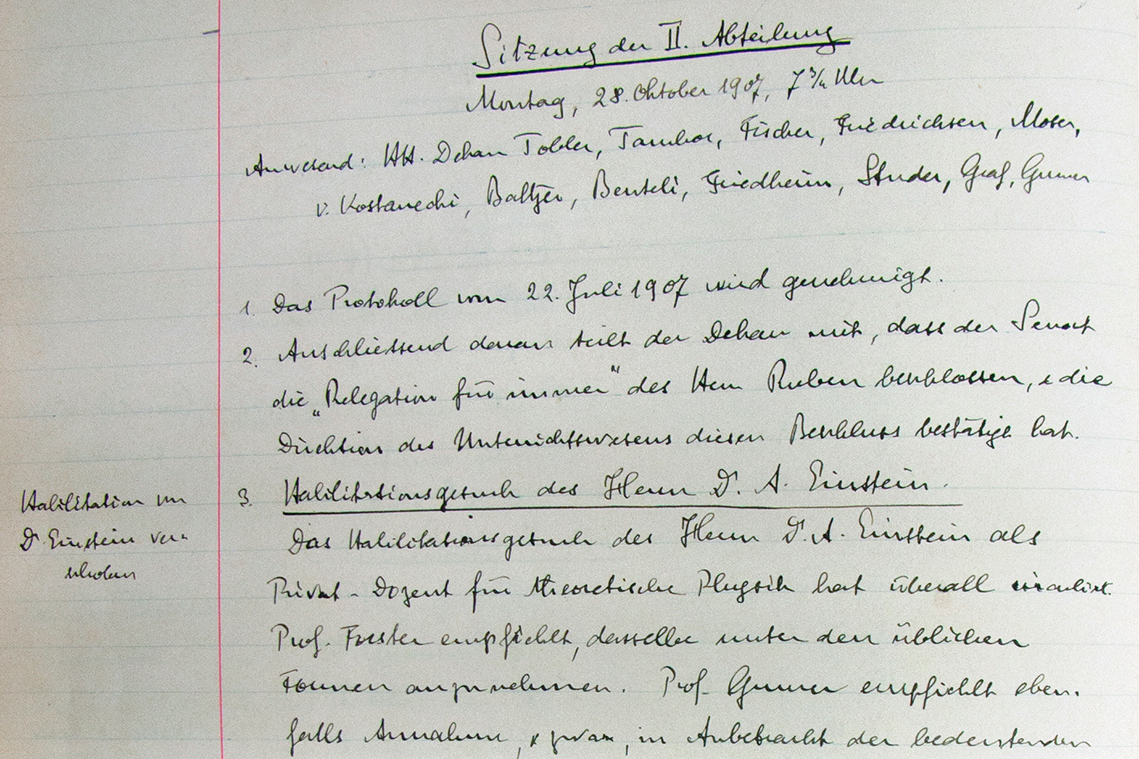 Sitzung der II. Abteilung
Montag, 28. Oktober 1907, 7 3/4 Uhr
Anwesend: HH. Dekan Tobler, Tambor, Fischer, Friedrichsen, Moser,
v. Kostanecki, Baltzer, Benteli, Friedheim, Studer, Graf, Gruner
1. Das Protokoll vom 22. Juli 1907 wird genehmigt.
2. Anschliessend daran teilt der Dekan mit, dass der Senat
die „Relegation für immer" des Herrn Ruben beschlossen, & die
Direktion des Unterrichtswesens diesen Beschluss bestätigt hat.
Habilitation von
Dr Einstein ver-
schoben
3. Habilitationsgesuch des Herrn Dr. A. Einstein.
Das Habilitationsgesuch des Herrn Dr. A. Einstein als
Privat-Dozent für theoretische Physik hat überall circuliert.
Prof. Forster empfiehlt, dasselbe unter den üblichen
Formen anzunehmen. Prof. Gruner empfiehlt eben-
falls Annahme, & zwar, in Anbetracht der bedeutenden